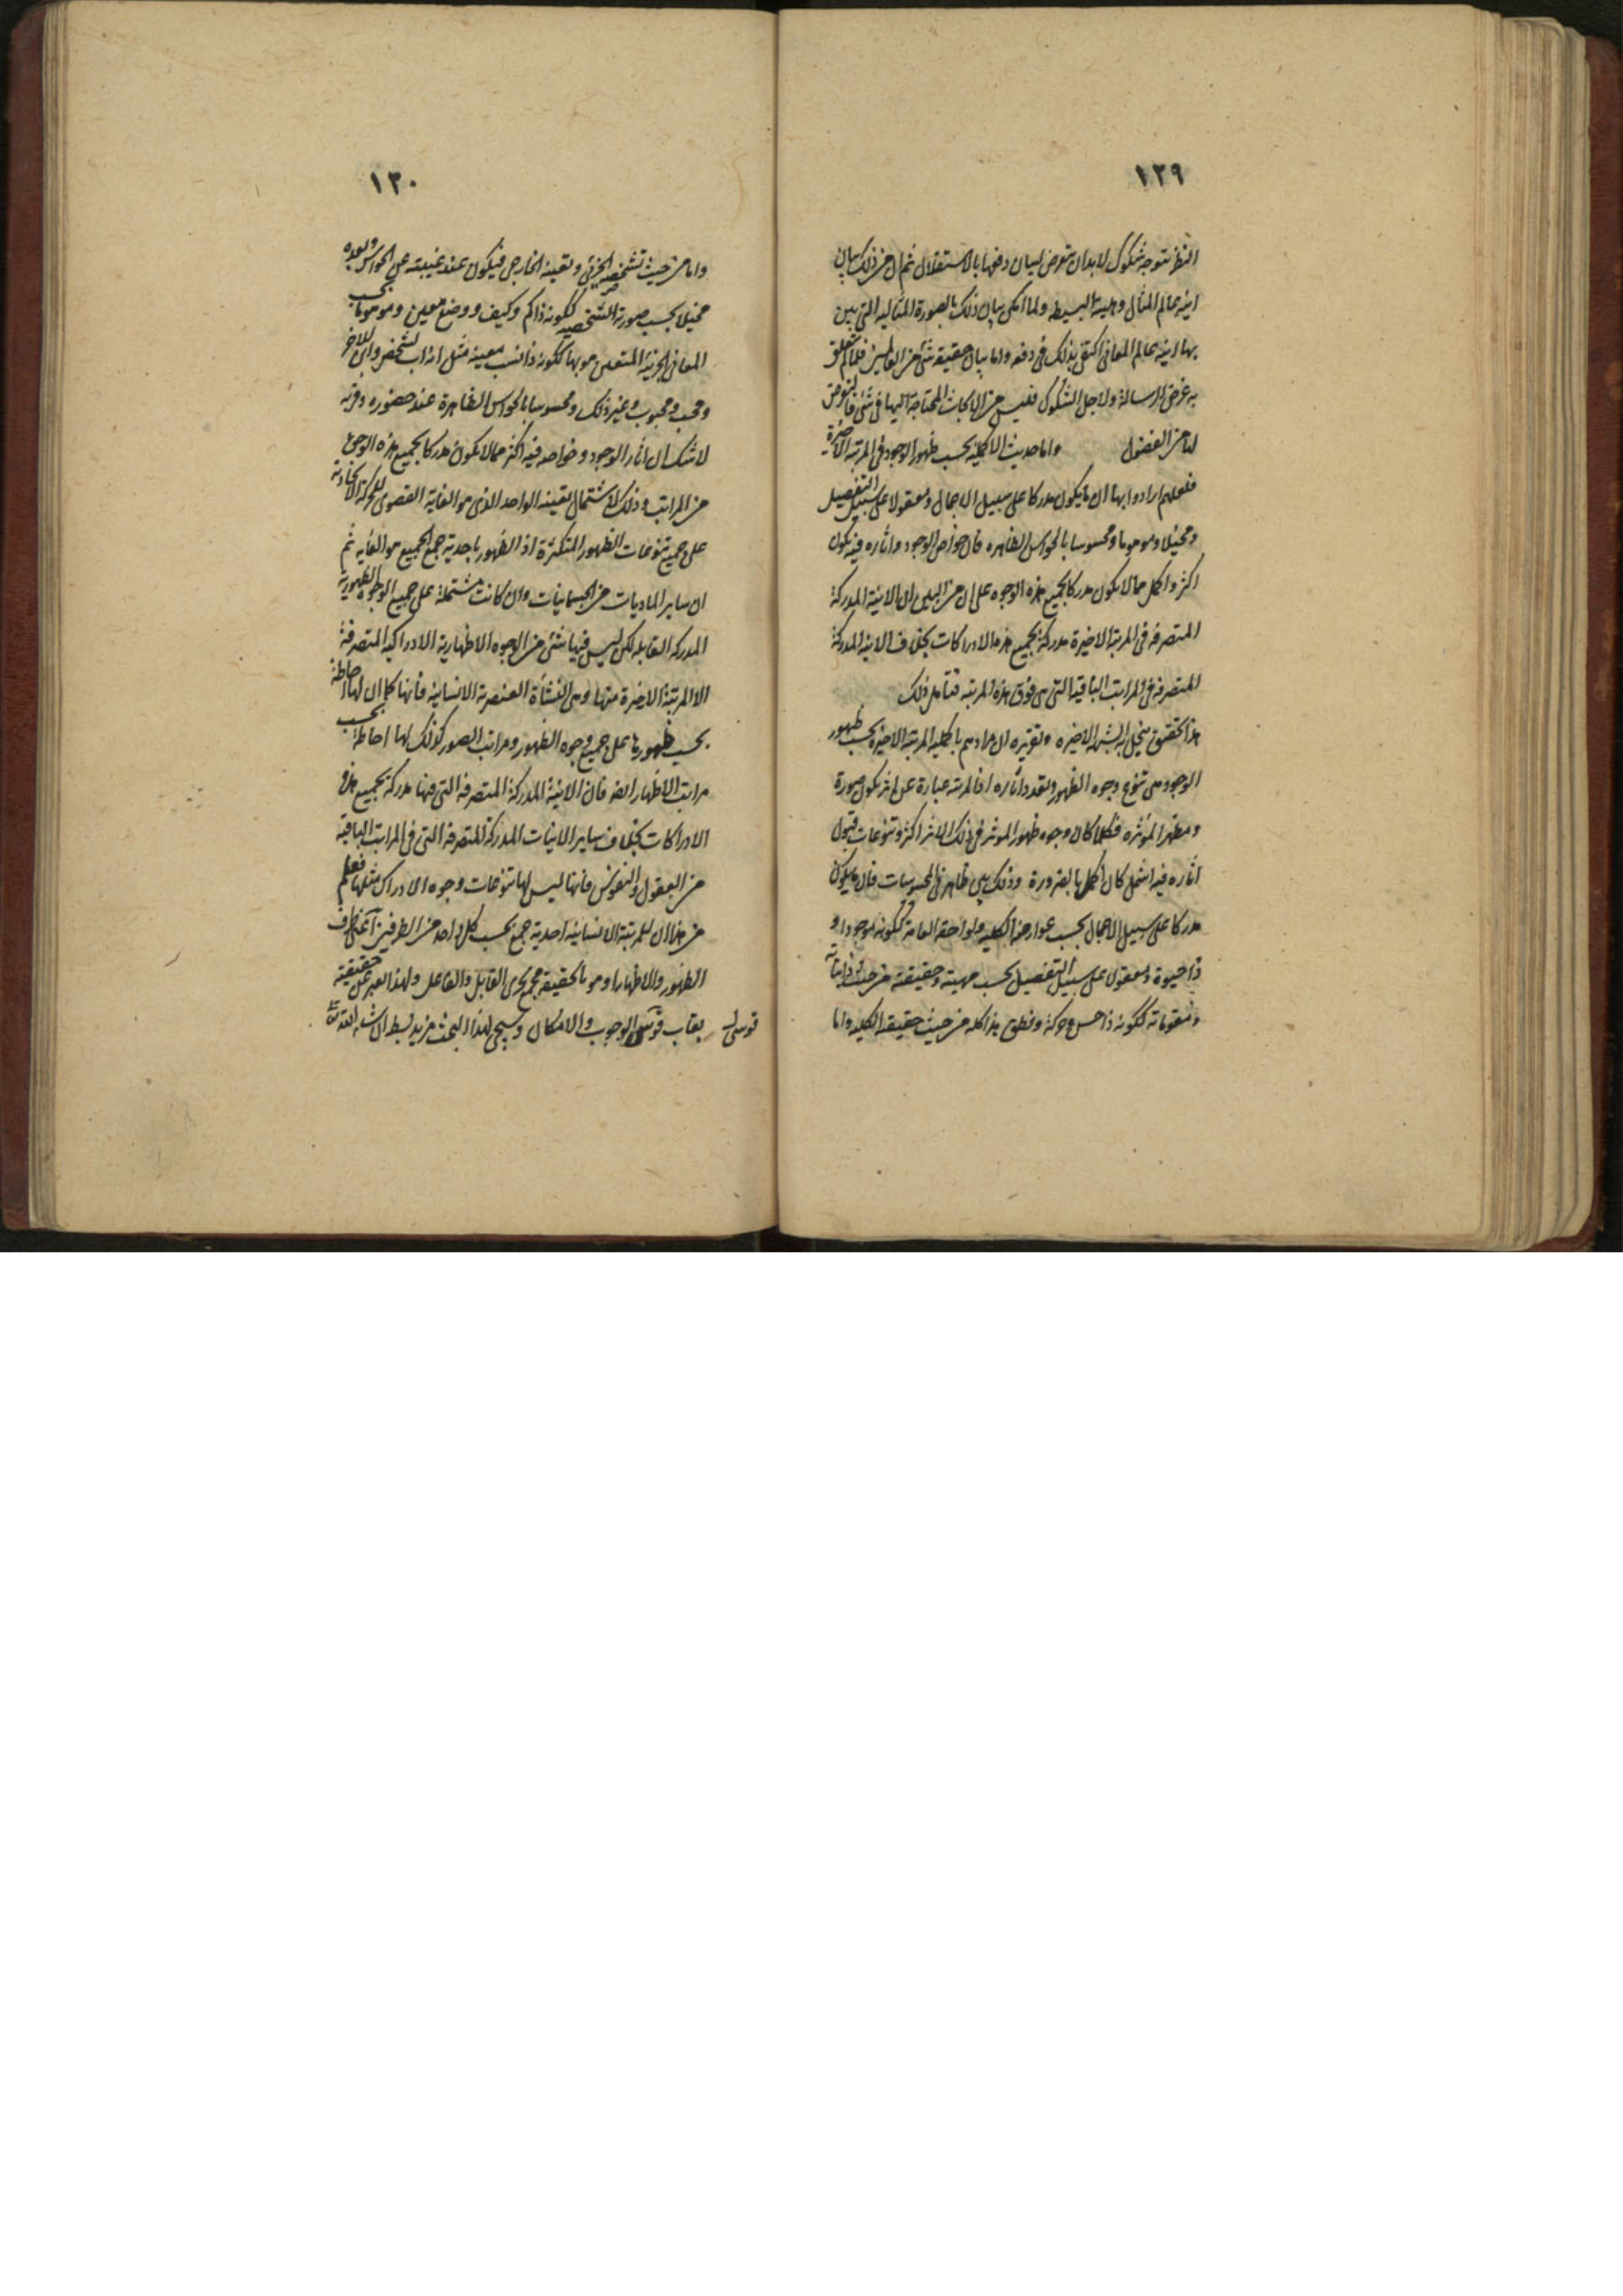 ١٢٩
النظر بتوجه شكوك لابد ان يتعرض لبيان دفعها بالاستقلال ثم ان من ذلك بيان
انية عالم المثال وهيئته البسيطه ولما امكن بيان ذلك بالصورة المثالية التى بين
بها انية عالم المعانى اكتفى بذلك فى دفعه واما بيان حقيقة شئ من العالمين فلما لم يتعلق
به غرض الرسالة ولاجل الشكوك فليس من الابحاث المحتاجة اليها فى شئ فالتعرض
لها من الفضول واما حديث الاكملية بحسب ظهور الوجود فى المرتبة الاخيرة
فلعلهم ارادوا بها ان ما يكون مدركا على سبيل الاجمال ومعقولا على سبيل التفصيل
ومخيلا وموهوما ومحسوسا بالحواس الظاهره فان خواص الوجود واثاره فيه يكون
اكثر واكمل مما لا يكون مدركا بجميع هذه الوجوه على ان من البين ان الانية المدركة
المتصرفه فى المرتبة الاخيرة مدركة بجميع هذه الادراكات بخلاف الانية المدركة
المتصرفه فى المراتب الباقية التى هى فوق هذه المرتبه فتأمل ذلك
هذا تحقيق ينحل به الشبهة الاخيره وتقريره ان مرادهم باكملية المرتبة الاخيرة بحسب ظهور
الوجود هى تنوع وجوه الظهور وتعدد اثاره اذ المرتبة عبارة عن اثر يكون صورة
ومظهرا لمؤثره فكلما كان وجوه ظهور المؤثر فى ذلك الاثر اكثر وتنوعات قبول
اثاره فيه اشمل كان اكمل بالضرورة وذلك بين ظاهر فى المحسوسات فان ما يكون
مدركا على سبيل الاجمال بحسب عوارضه الكليه ولواحقه العامة ككونه موجودا و
ذا حيوة ومعقولا على سبيل التفصيل بحسب مهيته وحقيقته من حيث ذاتياته
ومقوماته ككونه ذا حس وحركة ونطق هذا كله من حيث حقيقته الكليه واما
١٣٠
واما من حيث تشخصه الجزئى وتعينه الخارجى فيكون عند غيبته عن الحواس وبعده
مخيلا بحسب صورته الشخصيه ككونه ذا كم وكيف ووضع معين وموهوما بحسب
المعانى الجزئية المتعين هو بها ككونه ذا نسب معينة مثل انه اب لشخص وابن للاخر
ومحب ومحبوب وغير ذلك ومحسوسا بالحواس الظاهرة عند حضوره وقربه
لا شك ان اثار الوجود وخواصه فيه اكثر مما لا يكون مدركا بجميع هذه الوجوه
من المراتب وذلك لاشتمال تعينه الواحد الذى هو الغاية القصوى للحركة الايجادية
على جميع تنوعات الظهور المتكثرة اذ الظهور باحدية جمع الجميع هو الغايه ثم
ان ساير الماديات من الجسمانيات وان كانت مشتملة على جميع الوجوه الظهورية
المدركه القابله لكن ليس فيها شئ من الوجوه الاظهارية الادراكيه المتصرفة
الا المرتبة الاخيرة منها وهى النشأة العنصرية الانسانية فانها كما ان لها احاطة
بحسب ظهورها على جميع وجوه الظهور ومراتب الصور كذلك لها احاطة بحسب
مراتب الاظهار ايضا فان الانية المدركة المتصرفه التى فيها مدركة بجميع هذه
الادراكات بخلاف ساير الانيات المدركة المتصرفه التى فى المراتب الباقيه
من العقول والنفوس فانها ليس لها تنوعات وجوه الادراك مثلها فعلم
من هذا ان للمرتبة الانسانية احدية جمع بحسب كل واحد من الطرفين اعنى طرف
الظهور والاظهار اذ هو بالحقيقة مجمع بحرى القابل والفاعل ولهذا العبر عن حقيقته
بقاب قوسى الوجوب والامكان وسيجئ لهذا البحث مزيد بسط ان شاء الله تعالى
قوسى